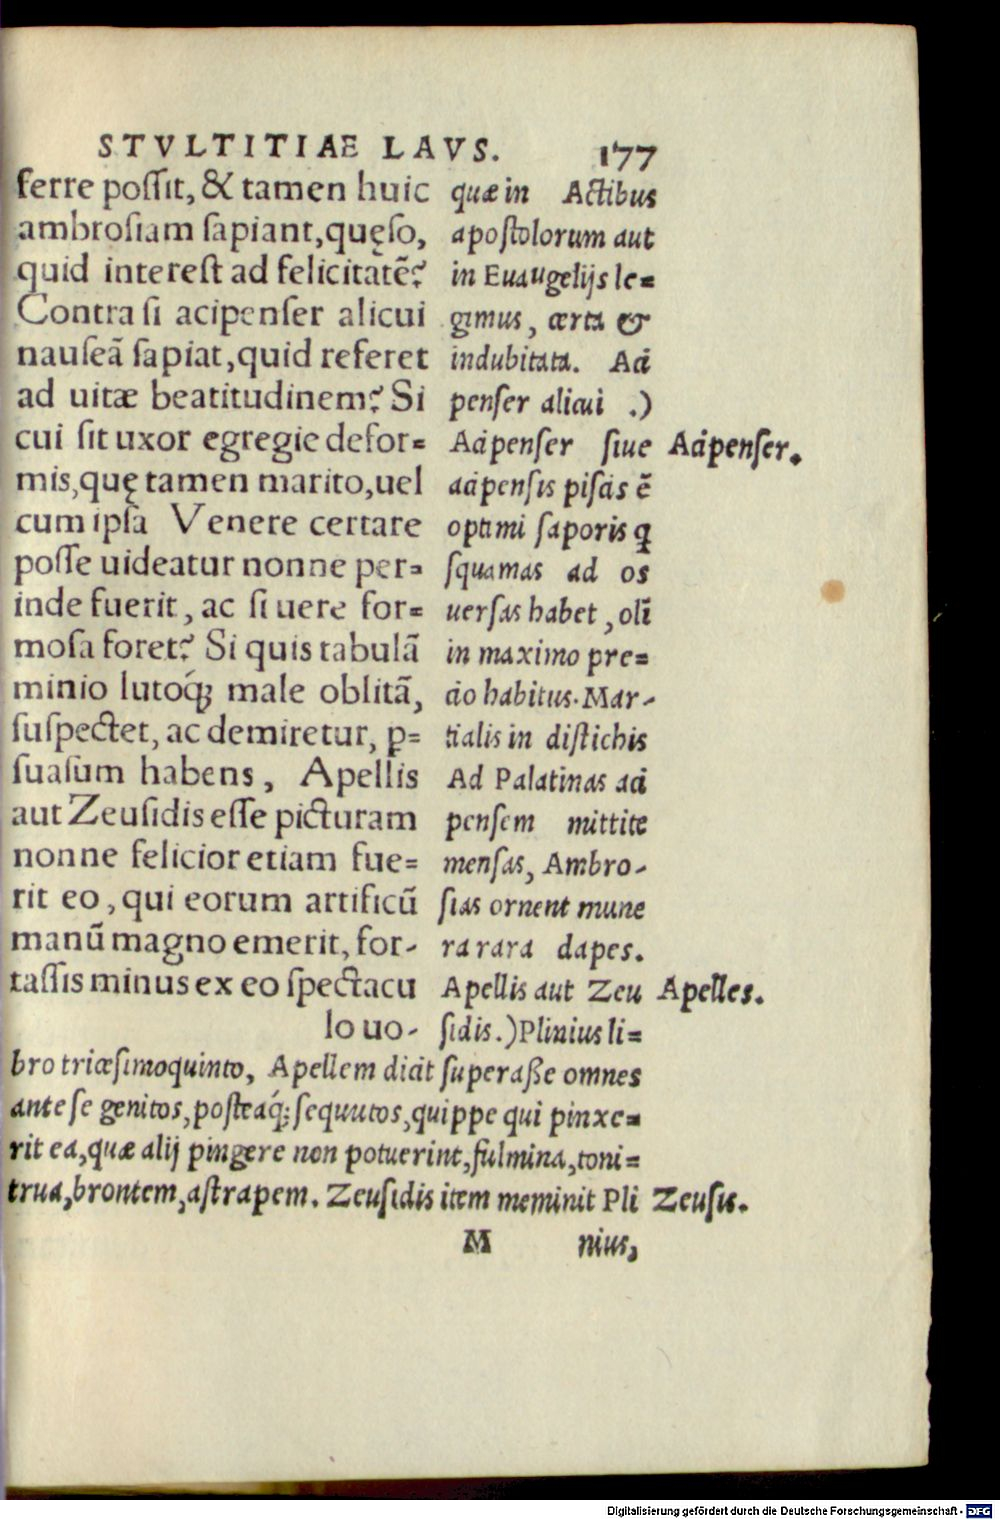 STVLTITIAE LAVS. 177
ferre poſſit, & tamen huic
ambroſiam ſapiant, quęſo,
quid intereſt ad felicitatē?
Contra ſi acipenſer alicui
nauſeā ſapiat, quid referet
ad uitæ beatitudinem? Si
cui ſit uxor egregie defor=
mis, quę tamen marito, uel
cum ipſa Venere certare
poſſe uideatur nonne per=
inde fuerit, ac ſi uere for=
moſa foret? Si quis tabulā
minio lutoq́; male oblitā,
ſuſpectet, ac demiretur, ꝑ=
ſuaſum habens, Apellis
aut Zeuſidis eſſe picturam
nonne felicior etiam fue=
rit eo, qui eorum artificū
manū magno emerit, for-
taſſis minus ex eo ſpectacu
lo uo-
quæ in Actibus
apoſtolorum aut
in Euaugelijs le=
gimus, certa &
indubitata. Aci
penſer alicui .)
Acipenſer ſiue
acipenſis piſcis ē
optimi ſaporis q
ſquamas ad os
uerſas habet, olī
in maximo pre=
cio habitus. Mar-
tialis in diſtichis
Ad Palatinas aci
penſem mittite
menſas, Ambro-
ſias ornent mune
ra rara dapes.
Apellis aut Zeu
ſidis.) Plinius li=
Acipenſer.
Apelles.
bro triceſimoquinto, Apellem dicit ſuperaſſe omnes
ante ſe genitos, poſteaq́; ſequutos, quippe qui pinxe=
rit ea, quæ alij pingere non potuerint, fulmina, toni=
trua, brontem, aſtrapem. Zeuſidis item meminit Pli
Zeuſis.
M nius,
Digitalisierung gefördert durch die Deutsche Forschungsgemeinschaft - DFG